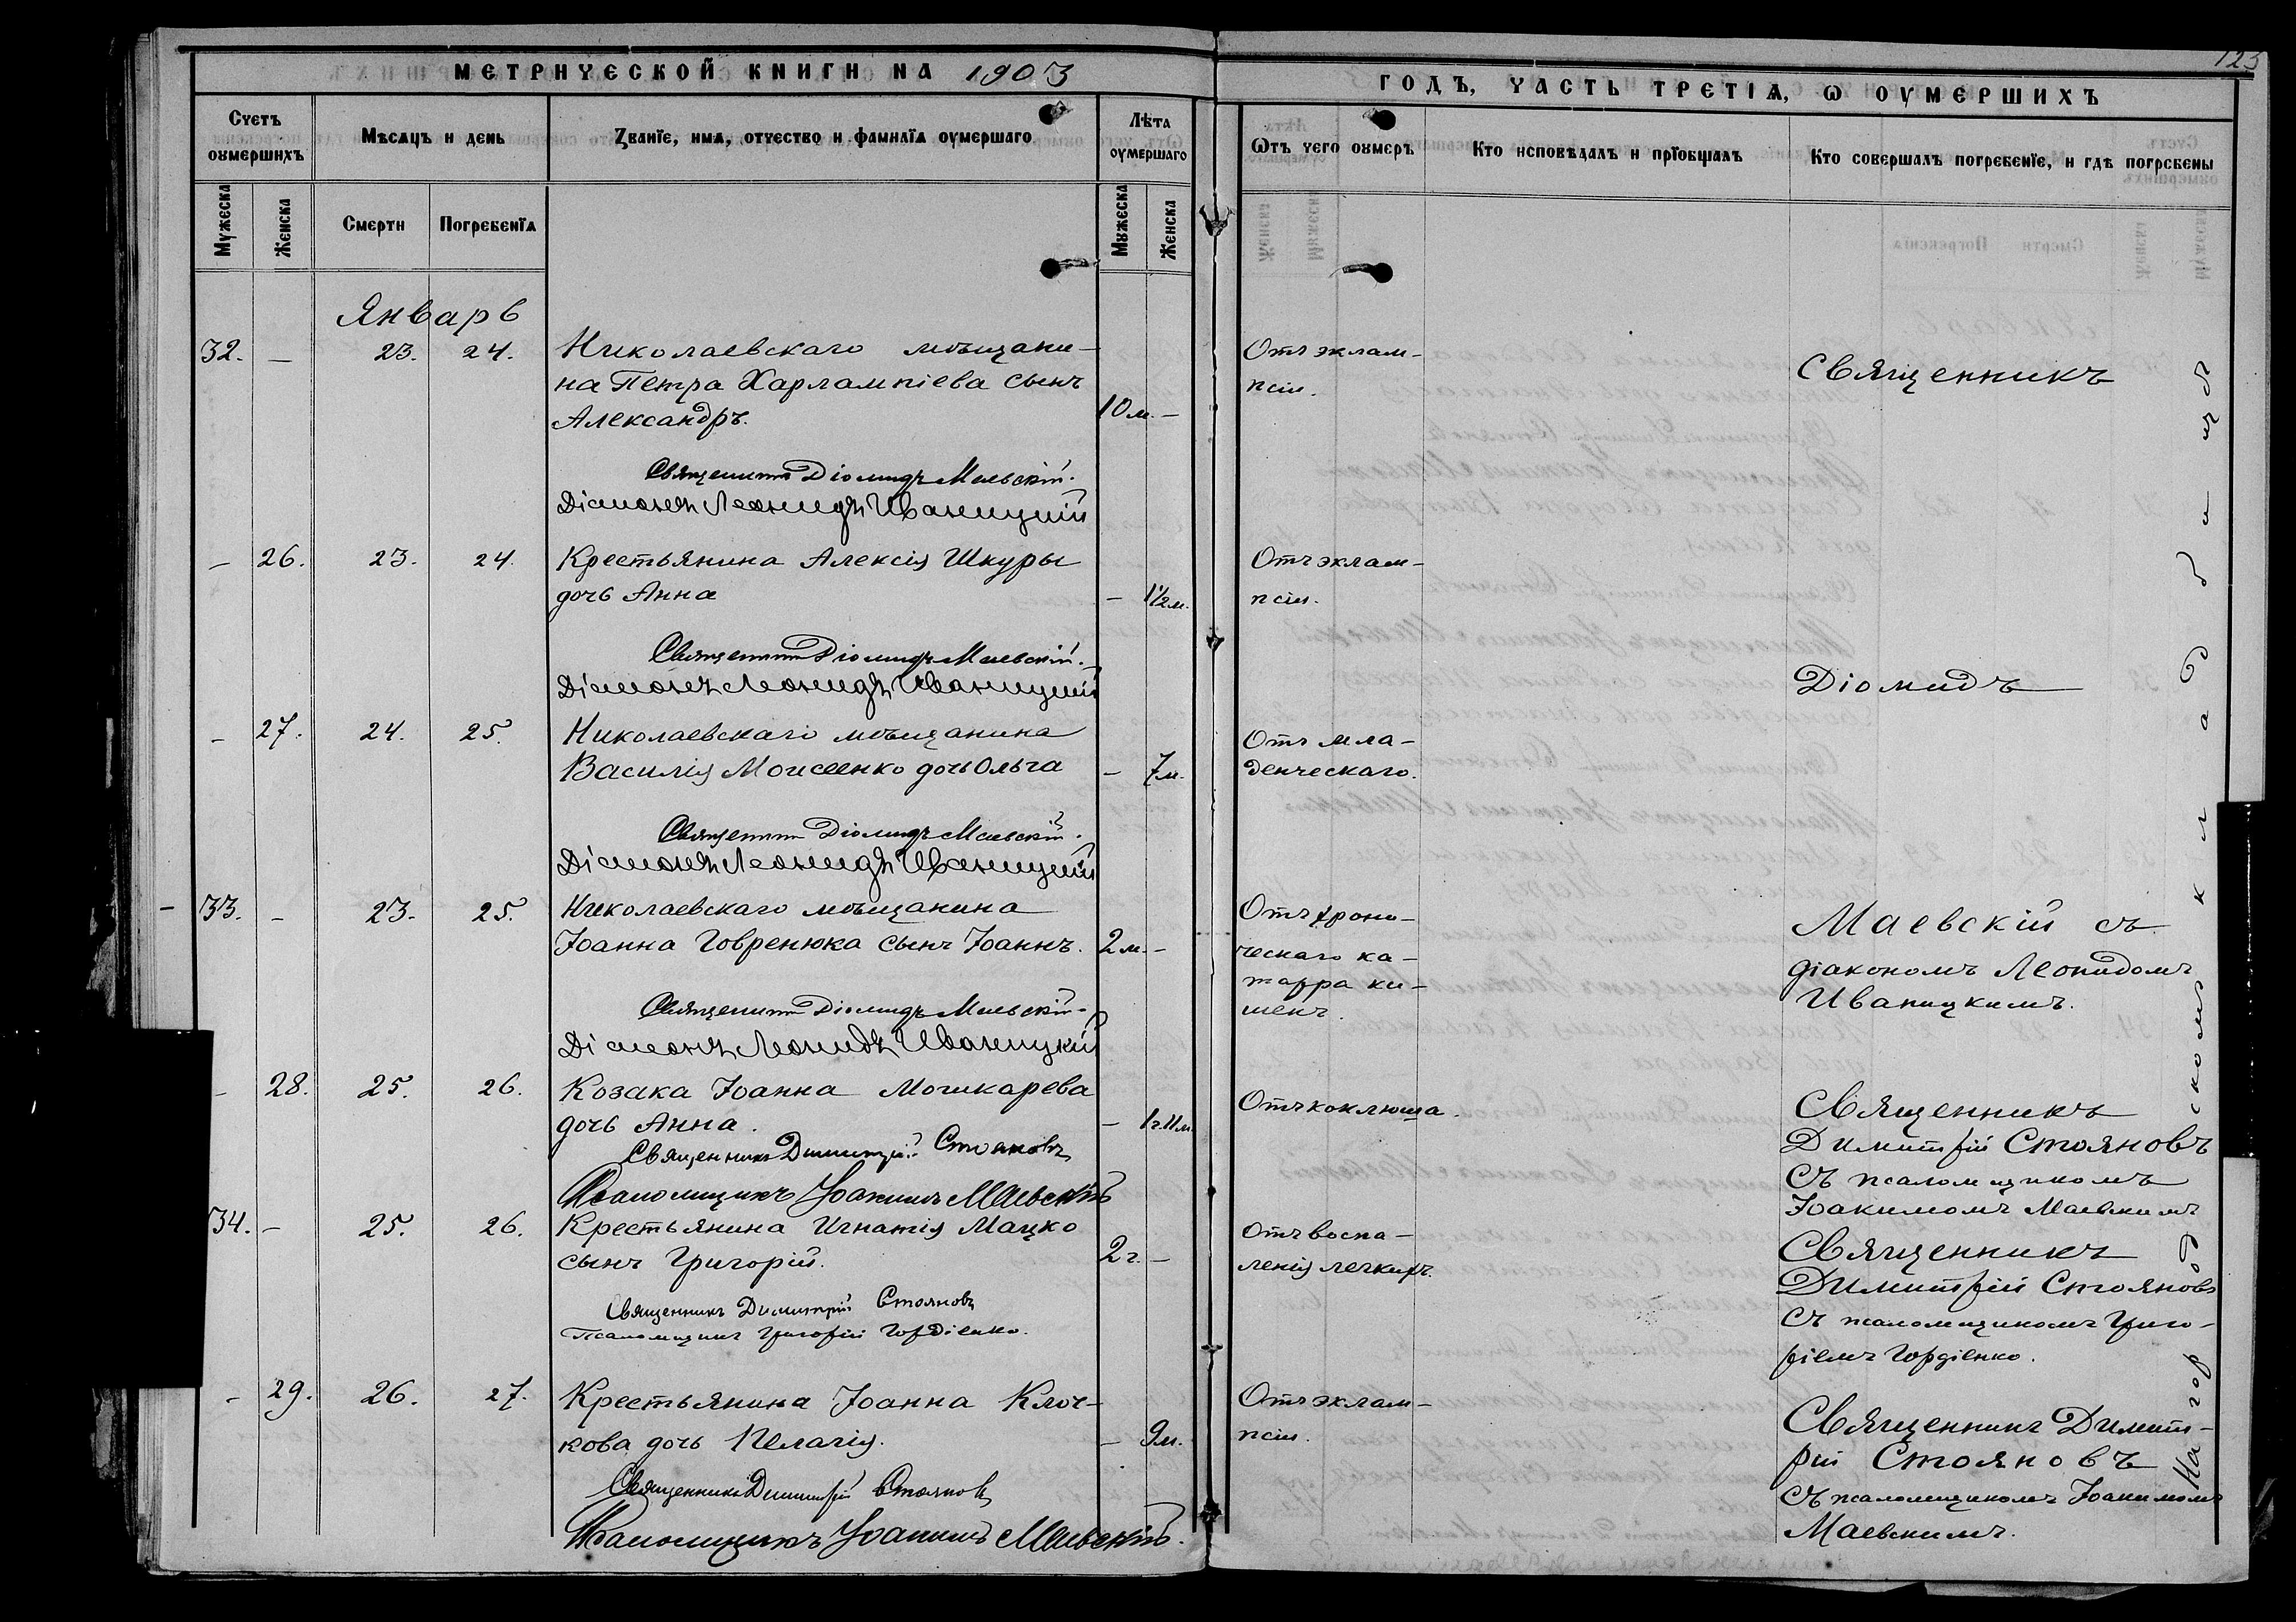 МЕТРИЧЕСКОЙ КНИГИ НА 1903
Счетъ оумершихъ
Мѣсяцъ и день
Званїе, имя, отчество и фамилїя оумершаго
Лѣта оумершаго
Мужеска
Женска
Смерти
Погребенїя
Мужеска
Женска
Январь
32. — 23. 24. Николаевскаго мѣщани-
на Петра Харлампіева сынъ
Александръ. 10 м. —
Священникъ Діомидъ Маевскій.
Діаконъ Леонидъ Иваницкій
— 26. 23. 24. Крестьянина Алексія Шкуры
дочь Анна — 1½ м.
Священникъ Діомидъ Маевскій.
Діаконъ Леонидъ Иваницкій
— 27. 24. 25. Николаевскаго мѣщанина
Василія Моисеенко дочь Ольга — 7 м.
Священникъ Діомидъ Маевскій.
Діаконъ Леонидъ Иваницкій
33. — 23. 25. Николаевскаго мѣщанина
Іоанна Говренюка сынъ Іоаннъ. 2 м. —
Священникъ Діомидъ Маевскій
Діаконъ Леонидъ Иваницкій
— 28. 25. 26. Козака Іоанна Мошкарева
дочь Анна. — 1 г. 11 м.
Священникъ Димитрій Стояновъ
Псаломщикъ Іоакимъ Маевскій
34. — 25. 26. Крестьянина Игнатія Мацко
сынъ Григорій. 2 г. —
Священникъ Димитрій Стояновъ
Псаломщикъ Григорій Гордіенко.
— 29. 26. 27. Крестьянина Іоанна Клоч-
кова дочь Пелагія. — 9 м.
Священникъ Димитрій Стояновъ
Псаломщикъ Іоакимъ Маевскій.
123
ГОДЪ, ЧАСТЬ ТРЕТІЯ, Ѡ ОУМЕРШИХЪ
Ѿтъ чего оумеръ
Кто исповѣдалъ и прїобщалъ
Кто совершалъ погребенїе, и гдѣ погребены
Отъ эклам-
псіи.
Священникъ
Отъ эклам-
псіи.
Діомидъ
Отъ мла-
денческаго.
Отъ хрони-
ческаго ка-
тарра ки-
шекъ.
Маевскій съ
діакономъ Леонидомъ
Иваницкимъ.
Отъ коклюша.
Священникъ
Димитрій Стояновъ
съ псаломщикомъ
Іоакимомъ Маевскимъ
Отъ воспа-
ленія легкихъ.
Священникъ
Димитрій Стояновъ
съ псаломщикомъ Григо-
ріемъ Гордіенко.
Отъ эклам-
псіи.
Священникъ Димит-
рій Стояновъ
съ псаломщикомъ Іоакимомъ
Маевскимъ.
На городскомъ кладбищѣ